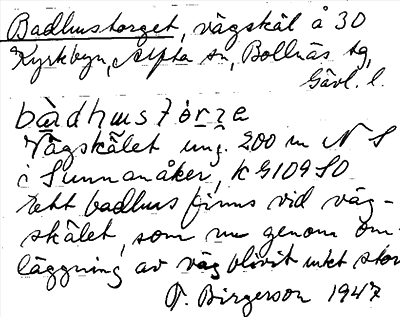 Badhustorget, vägskäl å 30
Kyrkbyn, Alfta sn, Bollnäs tg,
Gävl. l.
bàdhustórge
Vägskälet ung. 200 m N S
i Sunnanåker, k G109 SO
Ett badhus finns vid väg-
skälet, som nu genom om-
läggning av väg blivit intet stor
T. Birgerson 1947